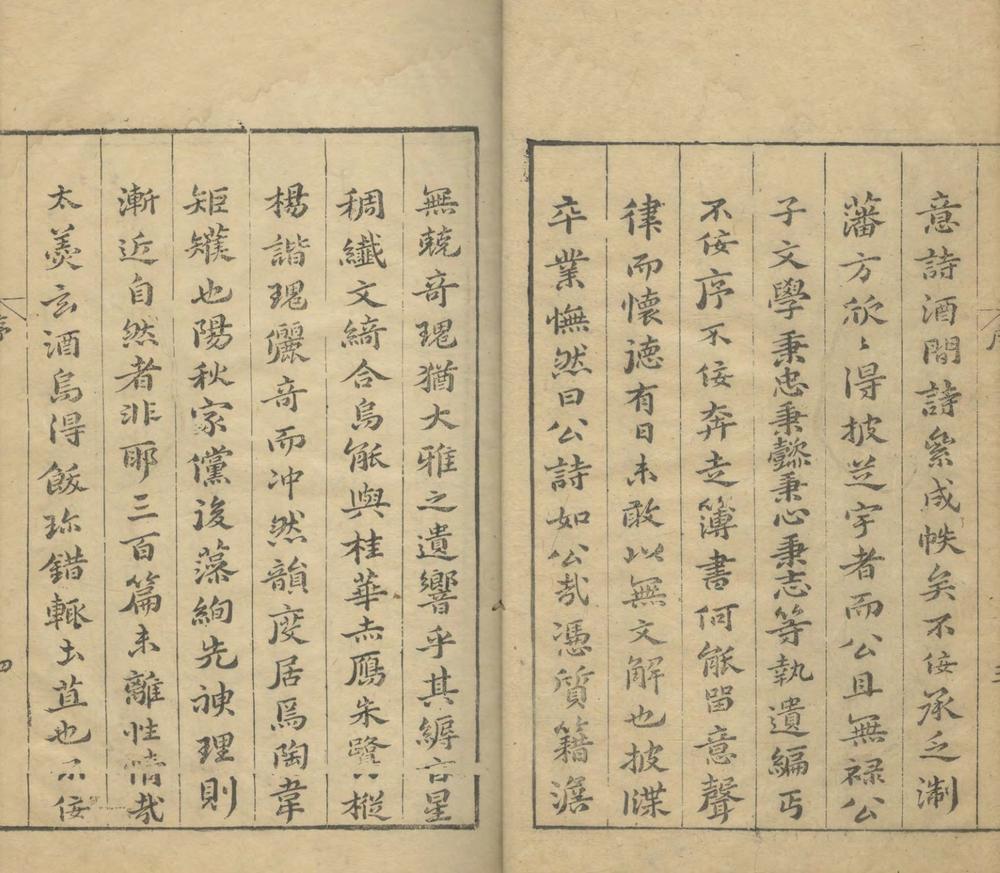 意詩酒間詩絫成帙矣不佞承乏淛
藩方欣〻得披芝宇者而公且無祿公
子文學秉忠秉懿秉心秉志等執遺編丐
不佞序不佞奔走簿書何能留意聲
律而懷德有日未敢以無文解也披牒
卒業憮然曰公詩如公哉憑質籍澹
無兢奇瑰猶大雅之遺響乎其縟言星
稠纖文綺合烏能與桂華赤鴈朱鷺〻樅
楊諧瑰儷奇而冲然韻度居焉陶韋
矩矱也陽秋家儻後藻絢先神理則
漸近自然者非耶三百篇未離性情哉
太羹玄酒烏得飯珎錯輙土苴也不佞
序
四